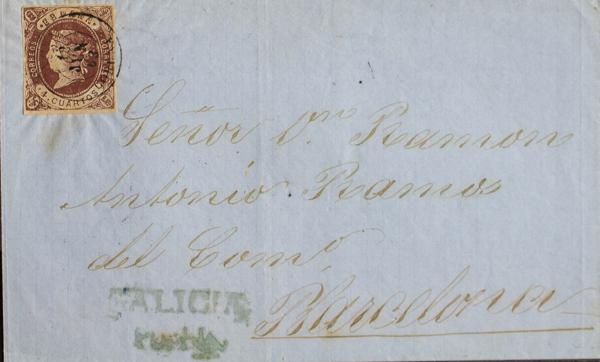 ESPAÑA
CORREOS
4 CUARTOS
Señor Dn Ramon
Antonio Ramos
del Como
GALICIA
Barcelona